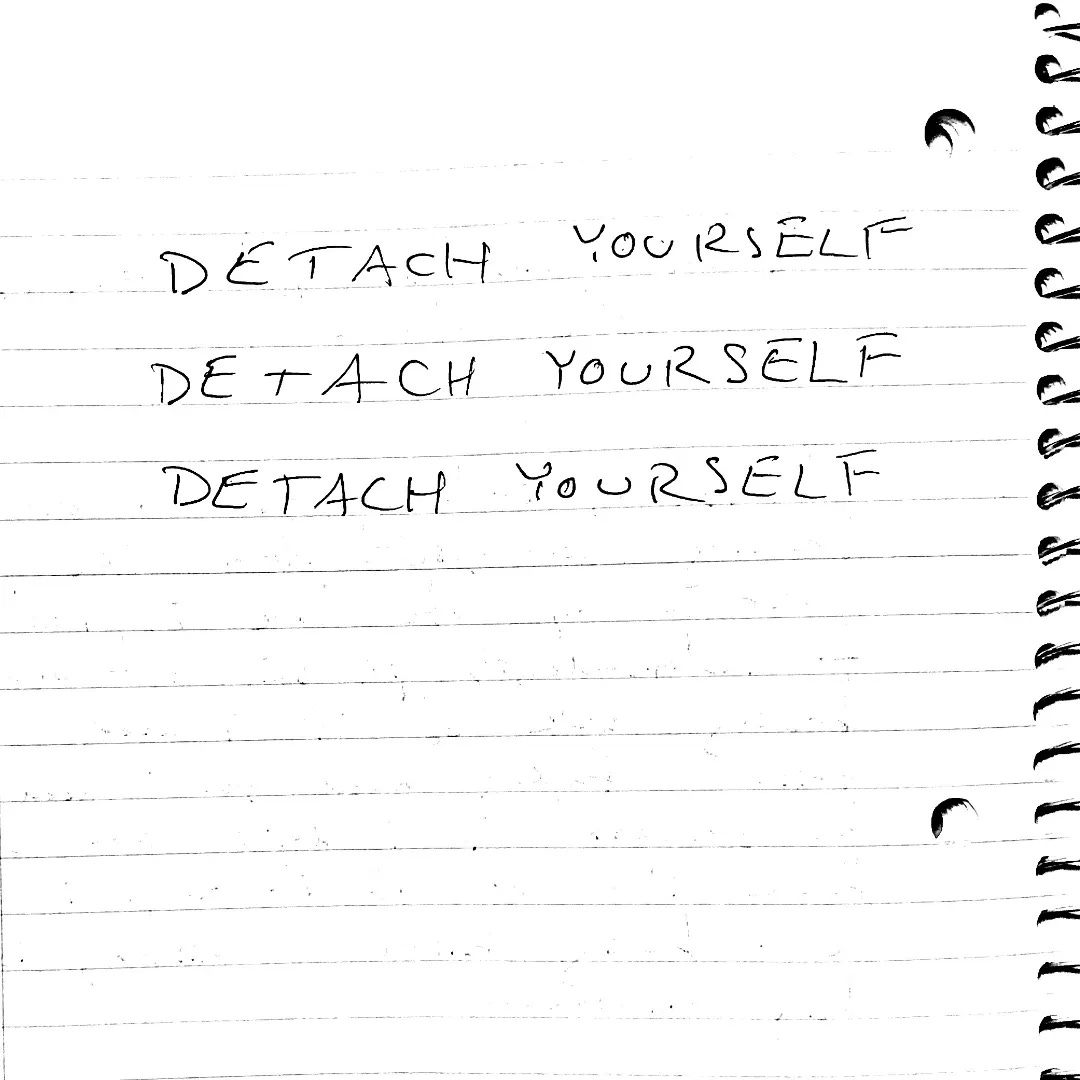 DETACH YOURSELF
DETACH YOURSELF
DETACH YOURSELF